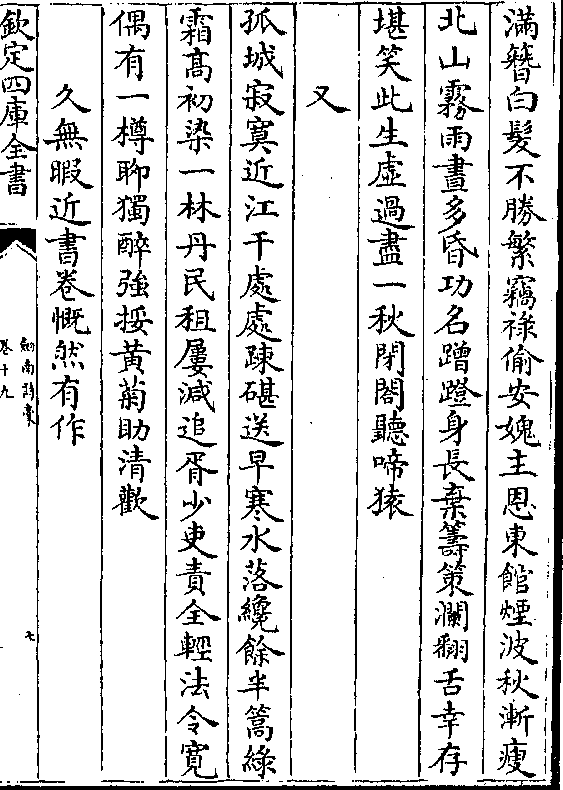 滿簪白髮不勝繁竊祿偷安媿主恩東館煙波秋漸瘦
北山霧雨晝多昏功名蹭蹬身長棄籌策瀾翻舌幸存
堪笑此生虛過盡一秋閉閤聽啼猿
又
孤城寂寞近江干處處疎碪送早寒水落纔餘半篙綠
霜髙初染一林丹民租屢減追胥少吏責全輕法令寛
偶有一樽聊獨醉強挼黃菊助清歡
久無暇近書卷慨然有作
欽定四庫全書
劍南詩藁
卷十九
七